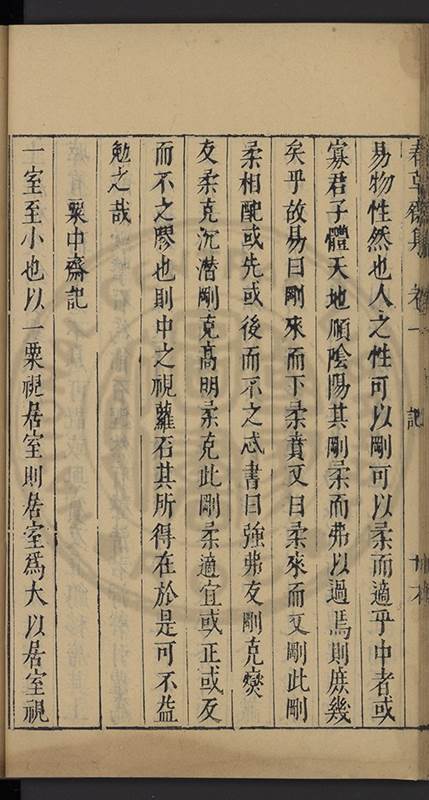 春草齋集 卷一 記
易物性然也人之性可以剛可以柔而適乎中者或
寡君子體天地順陰陽其剛柔而弗以過焉則庻幾
矣乎故易曰剛來而下柔賁又曰柔來而文剛此剛
柔相配或先或後而不之忒書曰強弗友剛克燮
友柔克沉潛剛克髙明柔克此剛柔適宜或正或反
而不之膠也則中之視蘿石其所得在於是可不益
勉之哉
粟中齋記
一室至小也以一粟視居室則居室爲大以居室視